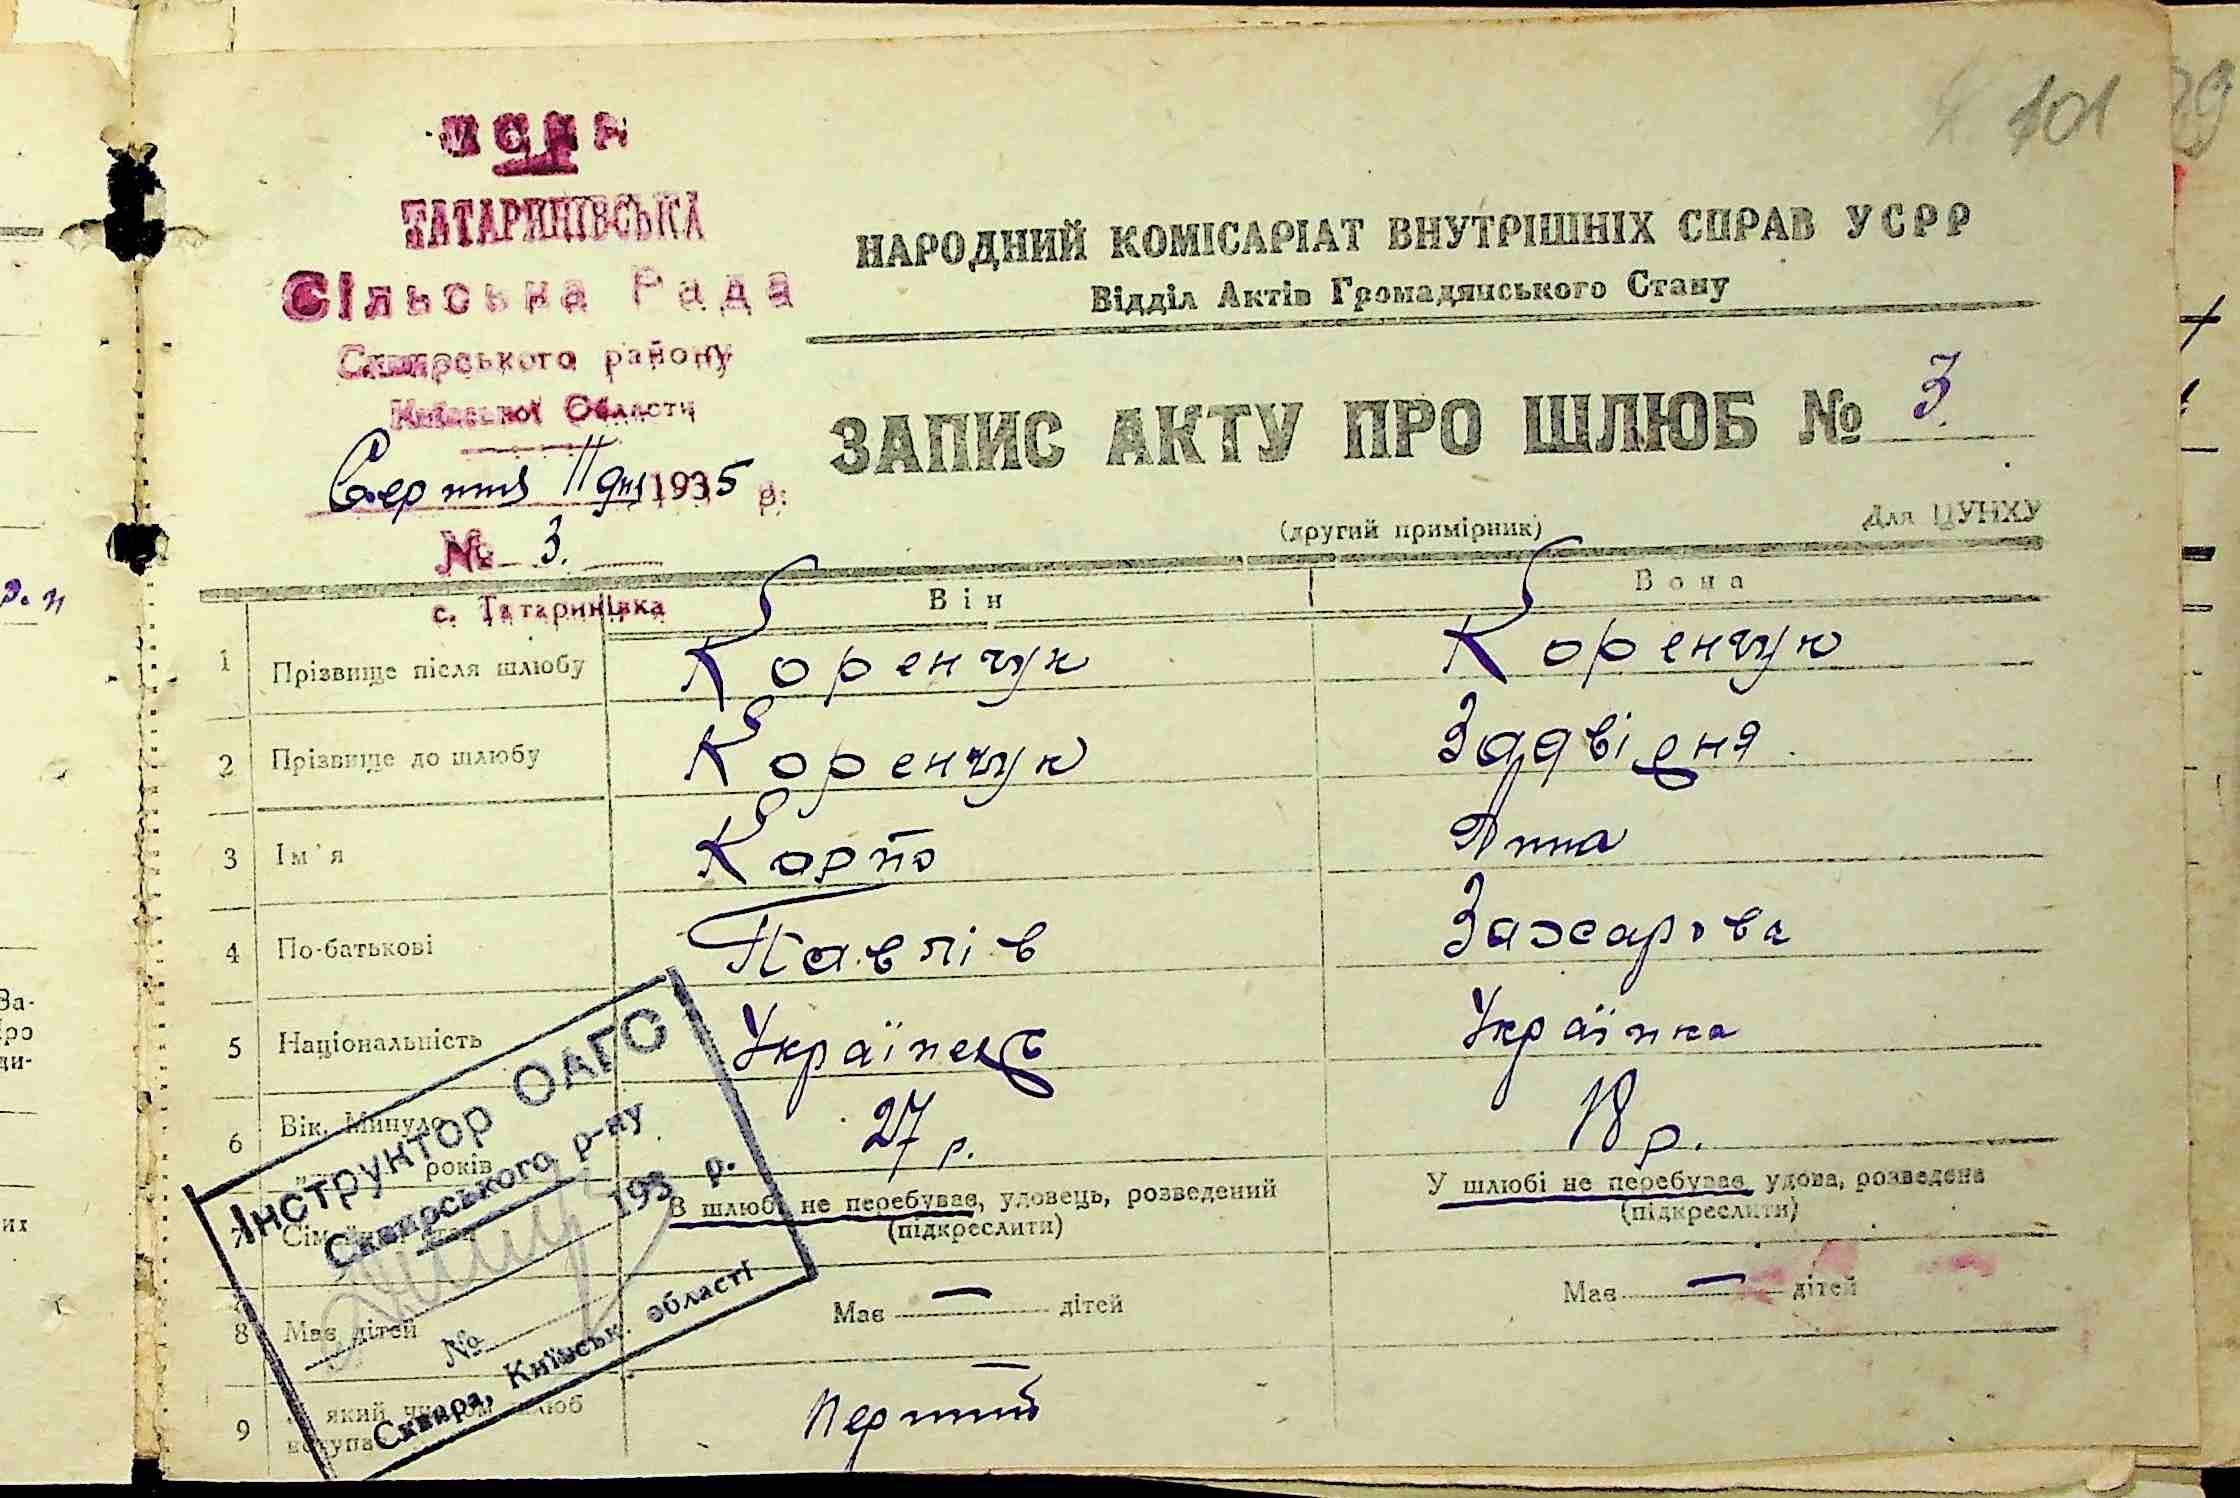 101
УСРР
ТАТАРИНІВСЬКА
Сільська Рада
Сквирського району
Київської Области
Серпня 11 дня 1935 р.
№ 3.
с. Татаринівка
НАРОДНИЙ КОМІСАРІАТ ВНУТРІШНІХ СПРАВ УСРР
Відділ Актів Громадянського Стану
ЗАПИС АКТУ ПРО ШЛЮБ № 3
(другий примірник) Для ЦУНХУ
Він Вона
1 Прізвище після шлюбу Коренчук Коренчук
2 Прізвище до шлюбу Коренчук Задвідня
3 Ім'я Карпо Анна
4 По-батькові Павлів Захарова
5 Національність Українець Українка
6 Вік. Минуло років 27 р. 18 р.
7 В шлюбі не перебуває, удовець, розведений У шлюбі не перебуває, удова, розведена
(підкреслити) (підкреслити)
8 Має дітей Має — дітей Має — дітей
9 який шлюб Перший
Інструктор ОАГС
Сквирського р-ну
193 р.
№
Сквира, Київськ. області